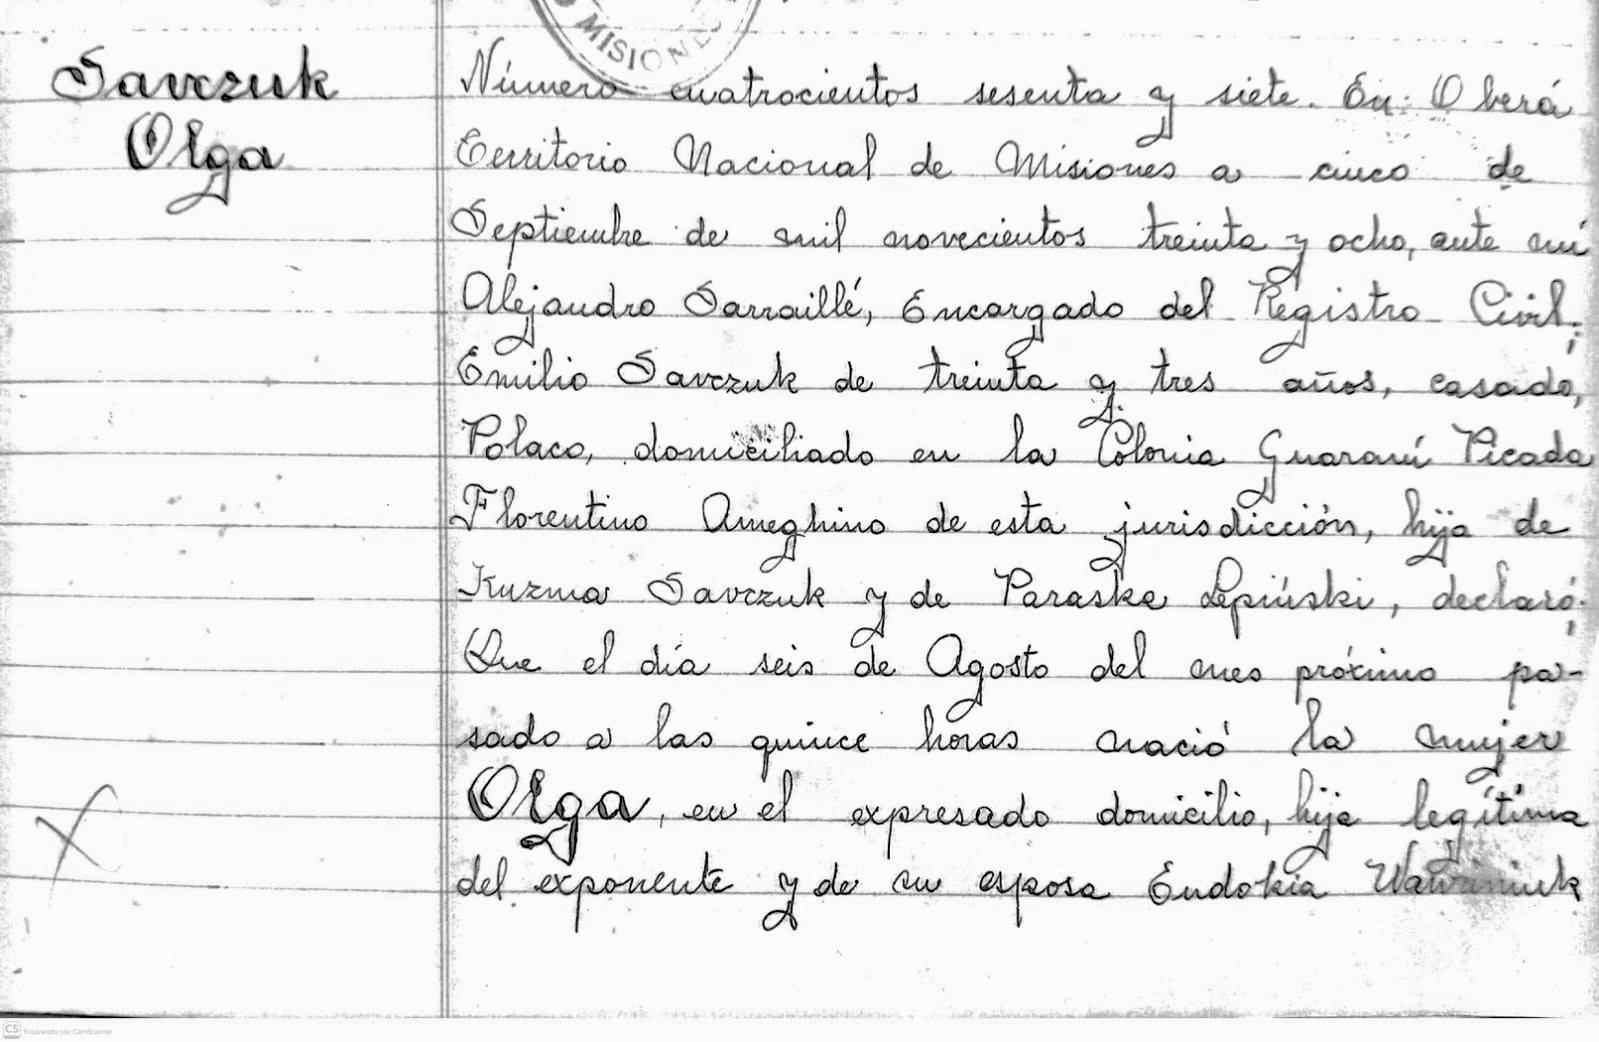 MISIONE
Savczuk
Olga
Número cuatrocientos sesenta y siete. En Oberá
Territorio Nacional de Misiones a cinco de
Septiembre de mil novecientos treinta y ocho, ante mí
Alejandro Sarraillé, Encargado del Registro Civil;
Emilio Savczuk de treinta y tres años, casado,
Polaco, domiciliado en la Colonia Guaraní Picada
Florentino Ameghino de esta jurisdicción, hijo de
Kuzma Savczuk y de Paraska Lepiński, declaró;
Que el día seis de Agosto del mes próximo pa-
sado a las quince horas nació la mujer
Olga, en el expresado domicilio, hija legítima
del exponente y de su esposa Eudokia
CS Escaneado con CamScanner